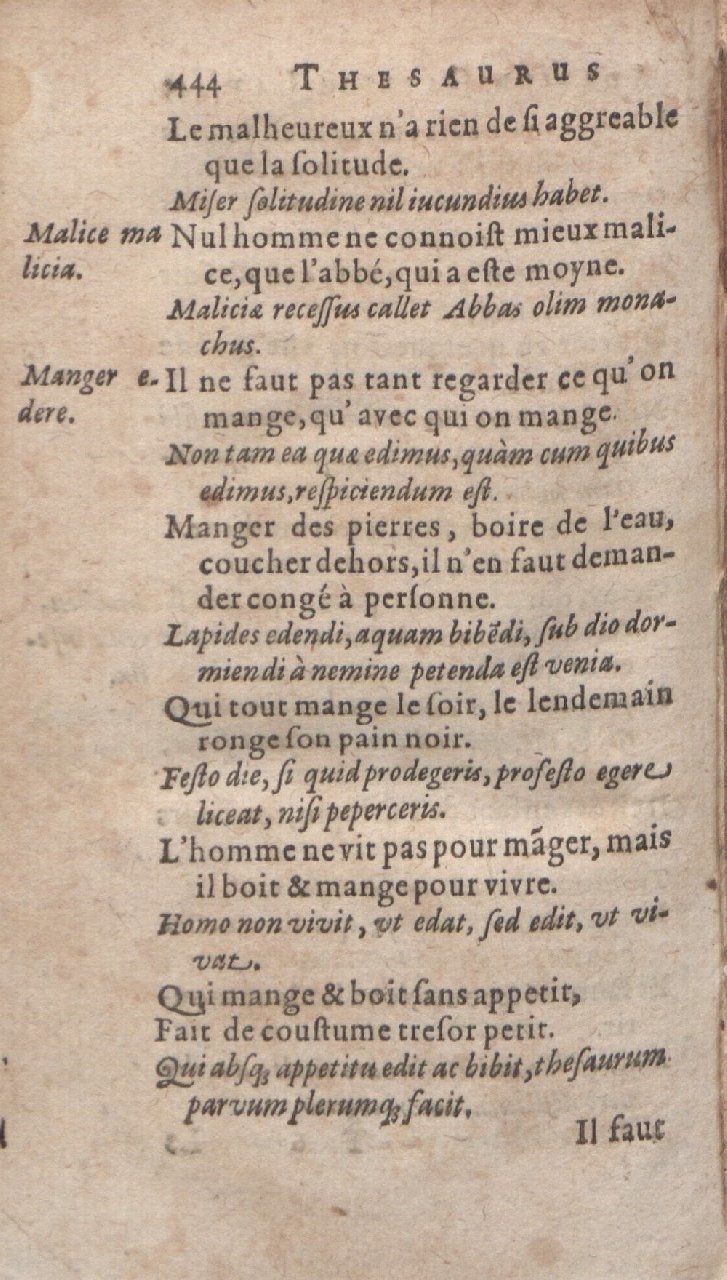 444 THESAURUS
Le malheureux n'a rien de ſi aggreable
que la ſolitude.
Miſer ſolitudine nil iucundius habet.
Malice ma
licia.
Nul homme ne connoiſt mieux mali-
ce, que l'abbé, qui a eſte moyne.
Maliciæ receſſus callet Abbas olim mona-
chus.
Manger e-
dere.
Il ne faut pas tant regarder ce qu'on
mange, qu'avec qui on mange.
Non tam ea quæ edimus, quàm cum quibus
edimus, reſpiciendum eſt.
Manger des pierres, boire de l'eau,
coucher dehors, il n'en faut deman-
der congé à perſonne.
Lapides edendi, aquam bibẽdi, ſub dio dor-
miendi à nemine petenda eſt venia.
Qui tout mange le ſoir, le lendemain
ronge ſon pain noir.
Feſto die, ſi quid prodegeris, profeſto egere
liceat, niſi peperceris.
L'homme ne vit pas pour mãger, mais
il boit & mange pour vivre.
Homo non vivit, vt edat, ſed edit, vt vi-
vat.
Qui mange & boit ſans appetit,
Fait de couſtume treſor petit.
Qui abſq; appetitu edit ac bibit, theſaurum
parvum plerumq; facit.
Il faut